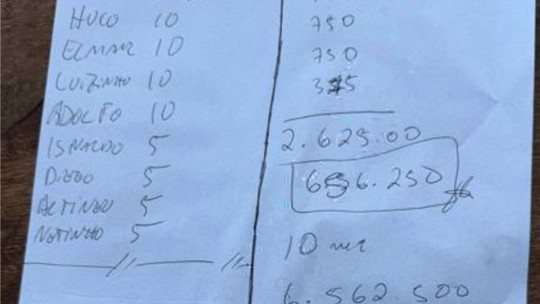 HUGO 10
ELMAR 10
LUIZINHO 10
ADOLFO 10
ISNALDO 5
DIEGO 5
ALTINEU 5
NETINHO 5
750
750
375
2.625.00
656.250
10 mil
6.562.500